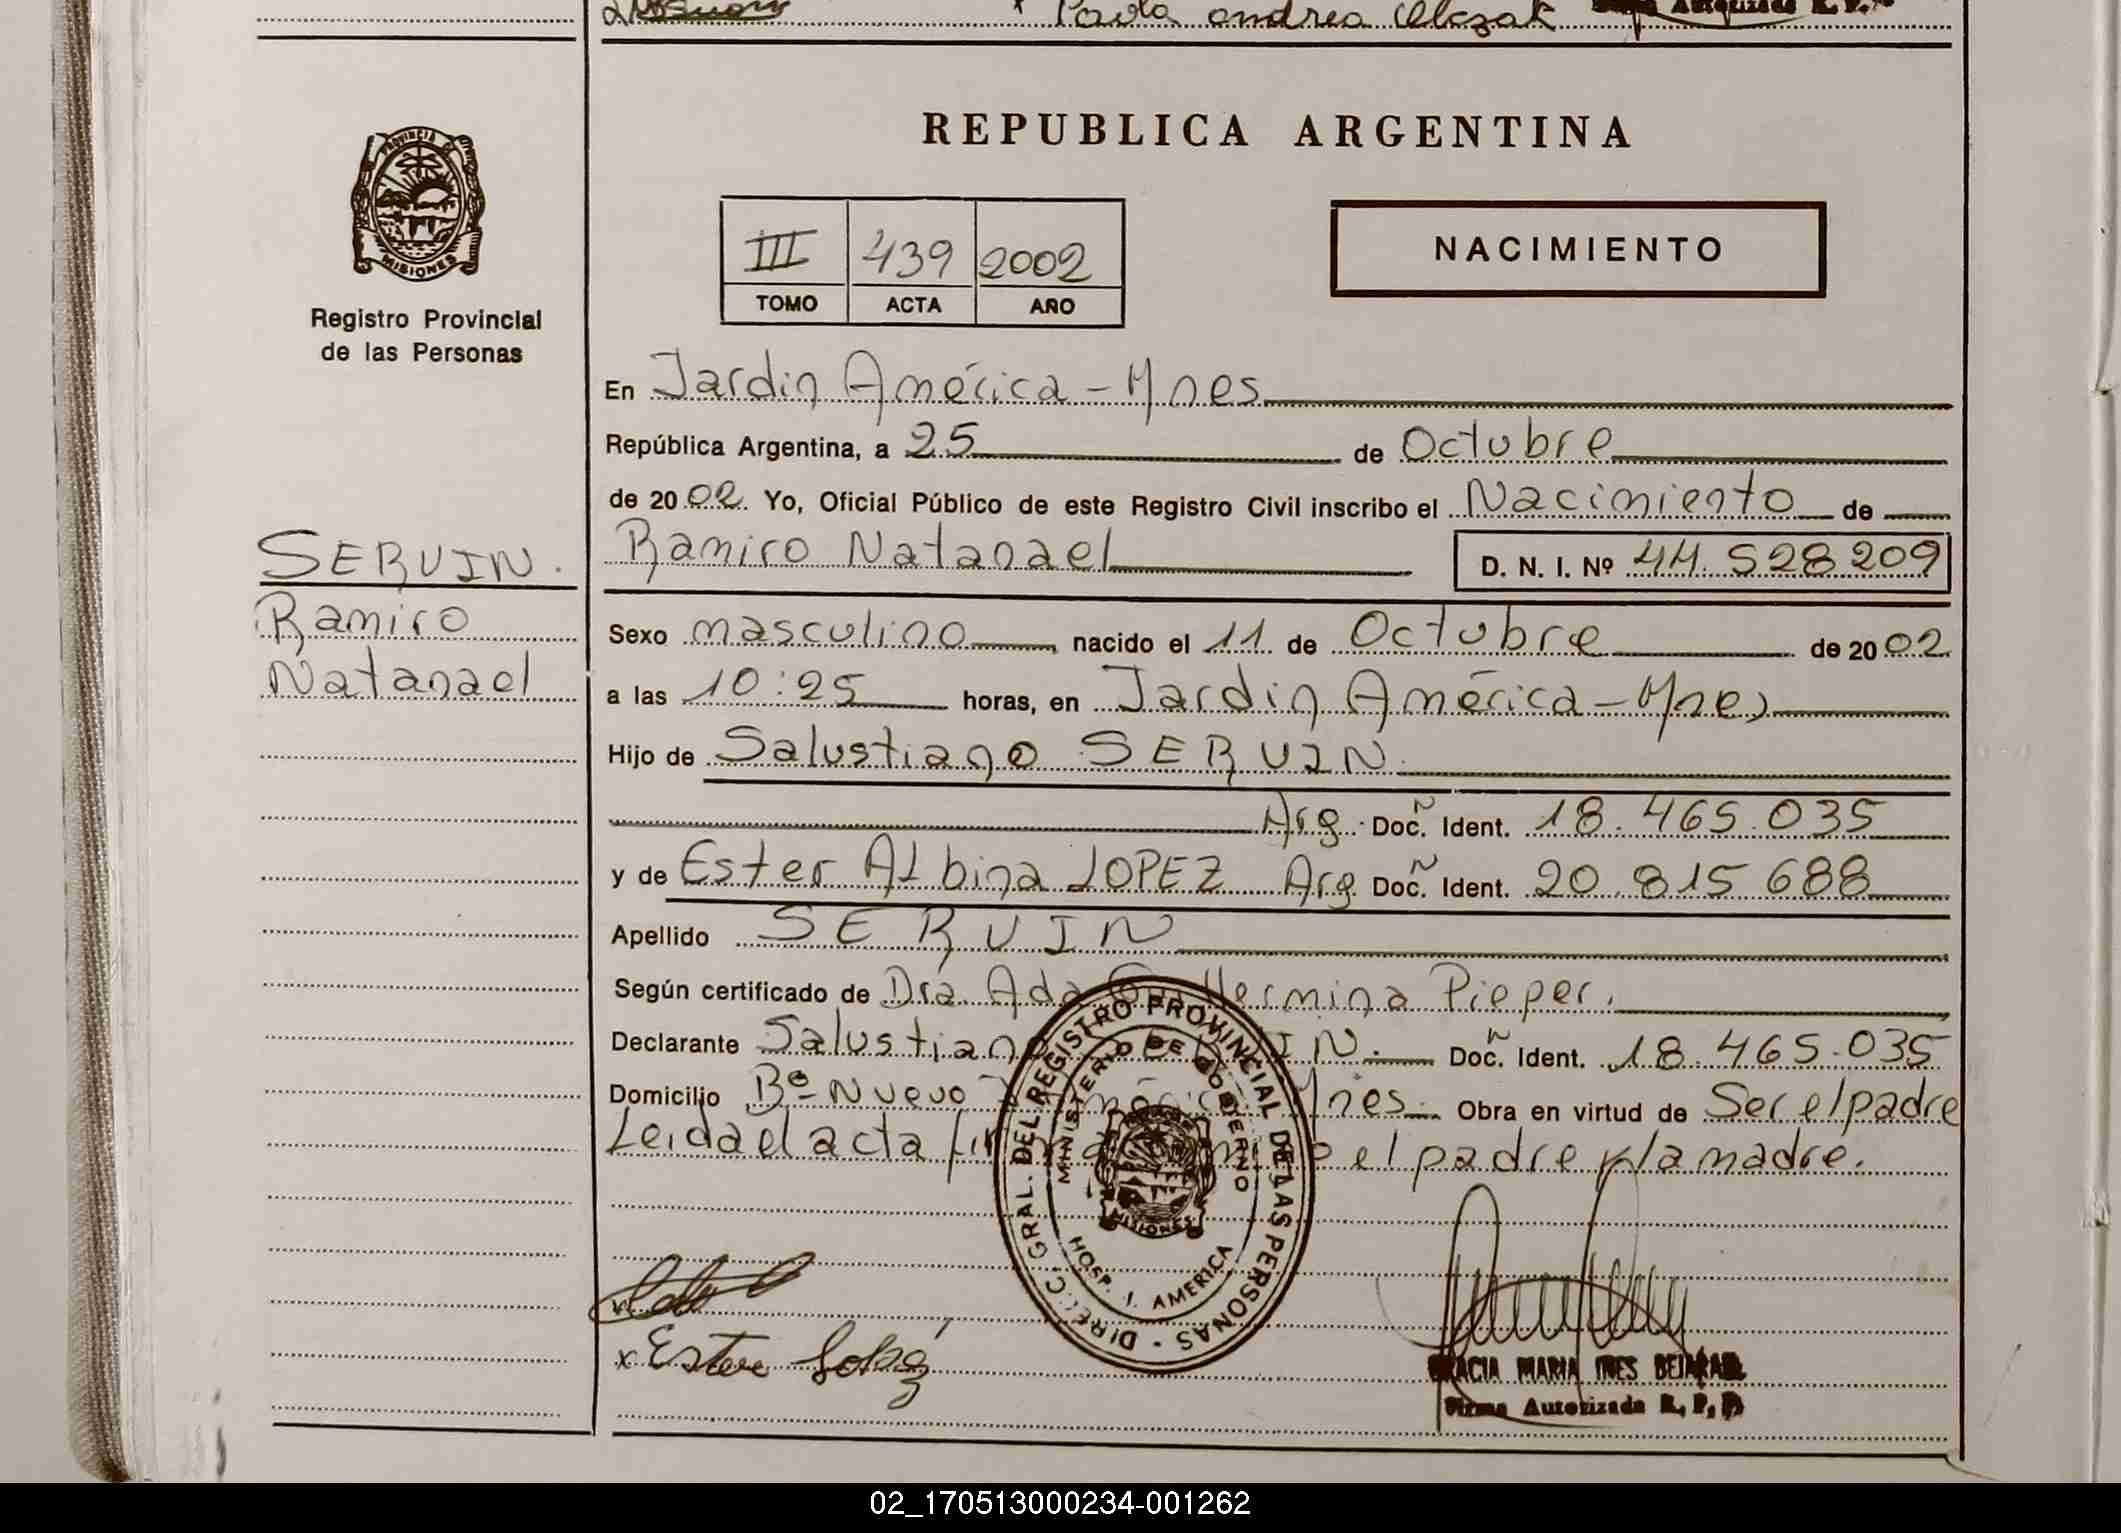 Paola Andrea Olczak
Firma Autorizada R. P. P.
PROVINCIA DE
MISIONES
Registro Provincial
de las Personas
SERVIN.
Ramiro
Natanael
REPUBLICA ARGENTINA
III 439 2002
TOMO ACTA AÑO
NACIMIENTO
En Jardin América - Mnes
República Argentina, a 25 de Octubre
de 2002. Yo, Oficial Público de este Registro Civil inscribo el Nacimiento de
Ramiro Natanael D. N. I. Nº 44.528209
Sexo masculino nacido el 11 de Octubre de 2002
a las 10:25 horas, en Jardin América - Mnes
Hijo de Salustiano SERVIN
Arg. Doc. Ident. 18.465.035
y de Ester Albina LOPEZ Arg. Doc. Ident. 20.815688
Apellido SERVIN
Según certificado de Dra. Ada Guillermina Pieper.
Declarante Salustiano SERVIN. Doc. Ident. 18.465.035
Domicilio Bº Nuevo J. América Mnes Obra en virtud de Ser el padre
Leida el acta el padre y la madre.
DIRECC. GRAL. DEL REGISTRO PROVINCIAL DE LAS PERSONAS
MINISTERIO DE GOBIERNO
MISIONES
HOSP. J. AMERICA
x
x Ester Lopez
GRACIA MARIA INES BEJARANO
Firma Autorizada R. P. P.
02_170513000234-001262